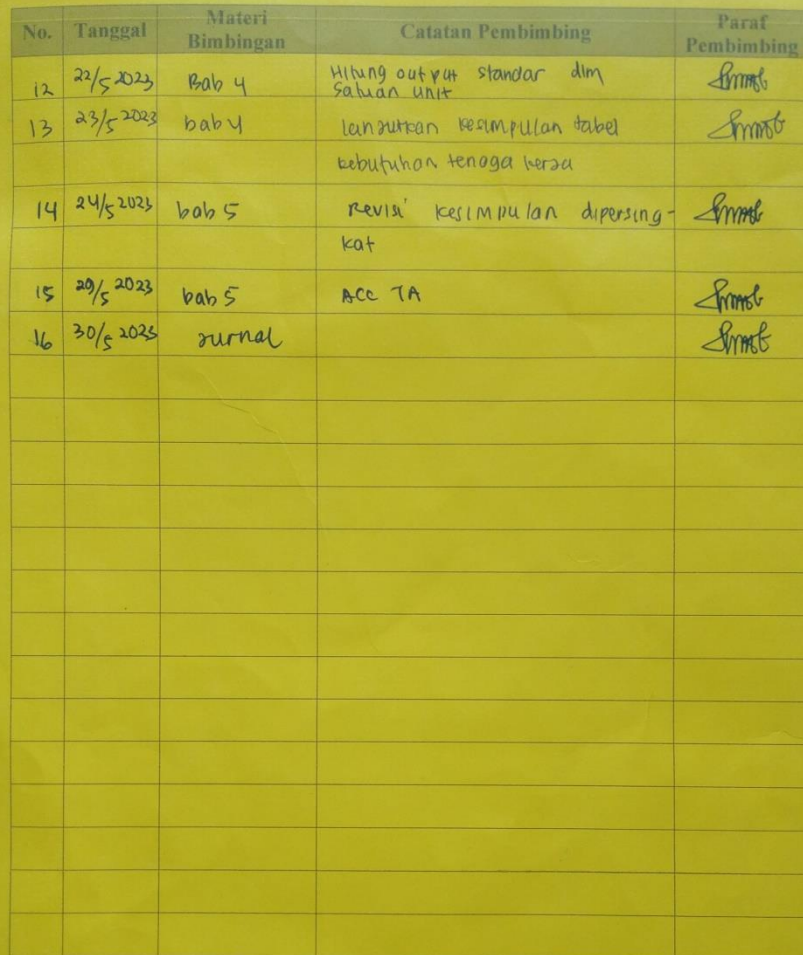 No. Tanggal Materi Bimbingan Catatan Pembimbing Paraf Pembimbing
12 22/5 2023 Bab 4 Hitung output standar dlm
satuan unit
13 23/5 2023 bab 4 lanjutkan kesimpulan tabel
kebutuhan tenaga kerja
14 24/5 2023 bab 5 Revisi kesimpulan dipersing-
kat
15 29/5 2023 bab 5 ACC TA
16 30/5 2023 Jurnal